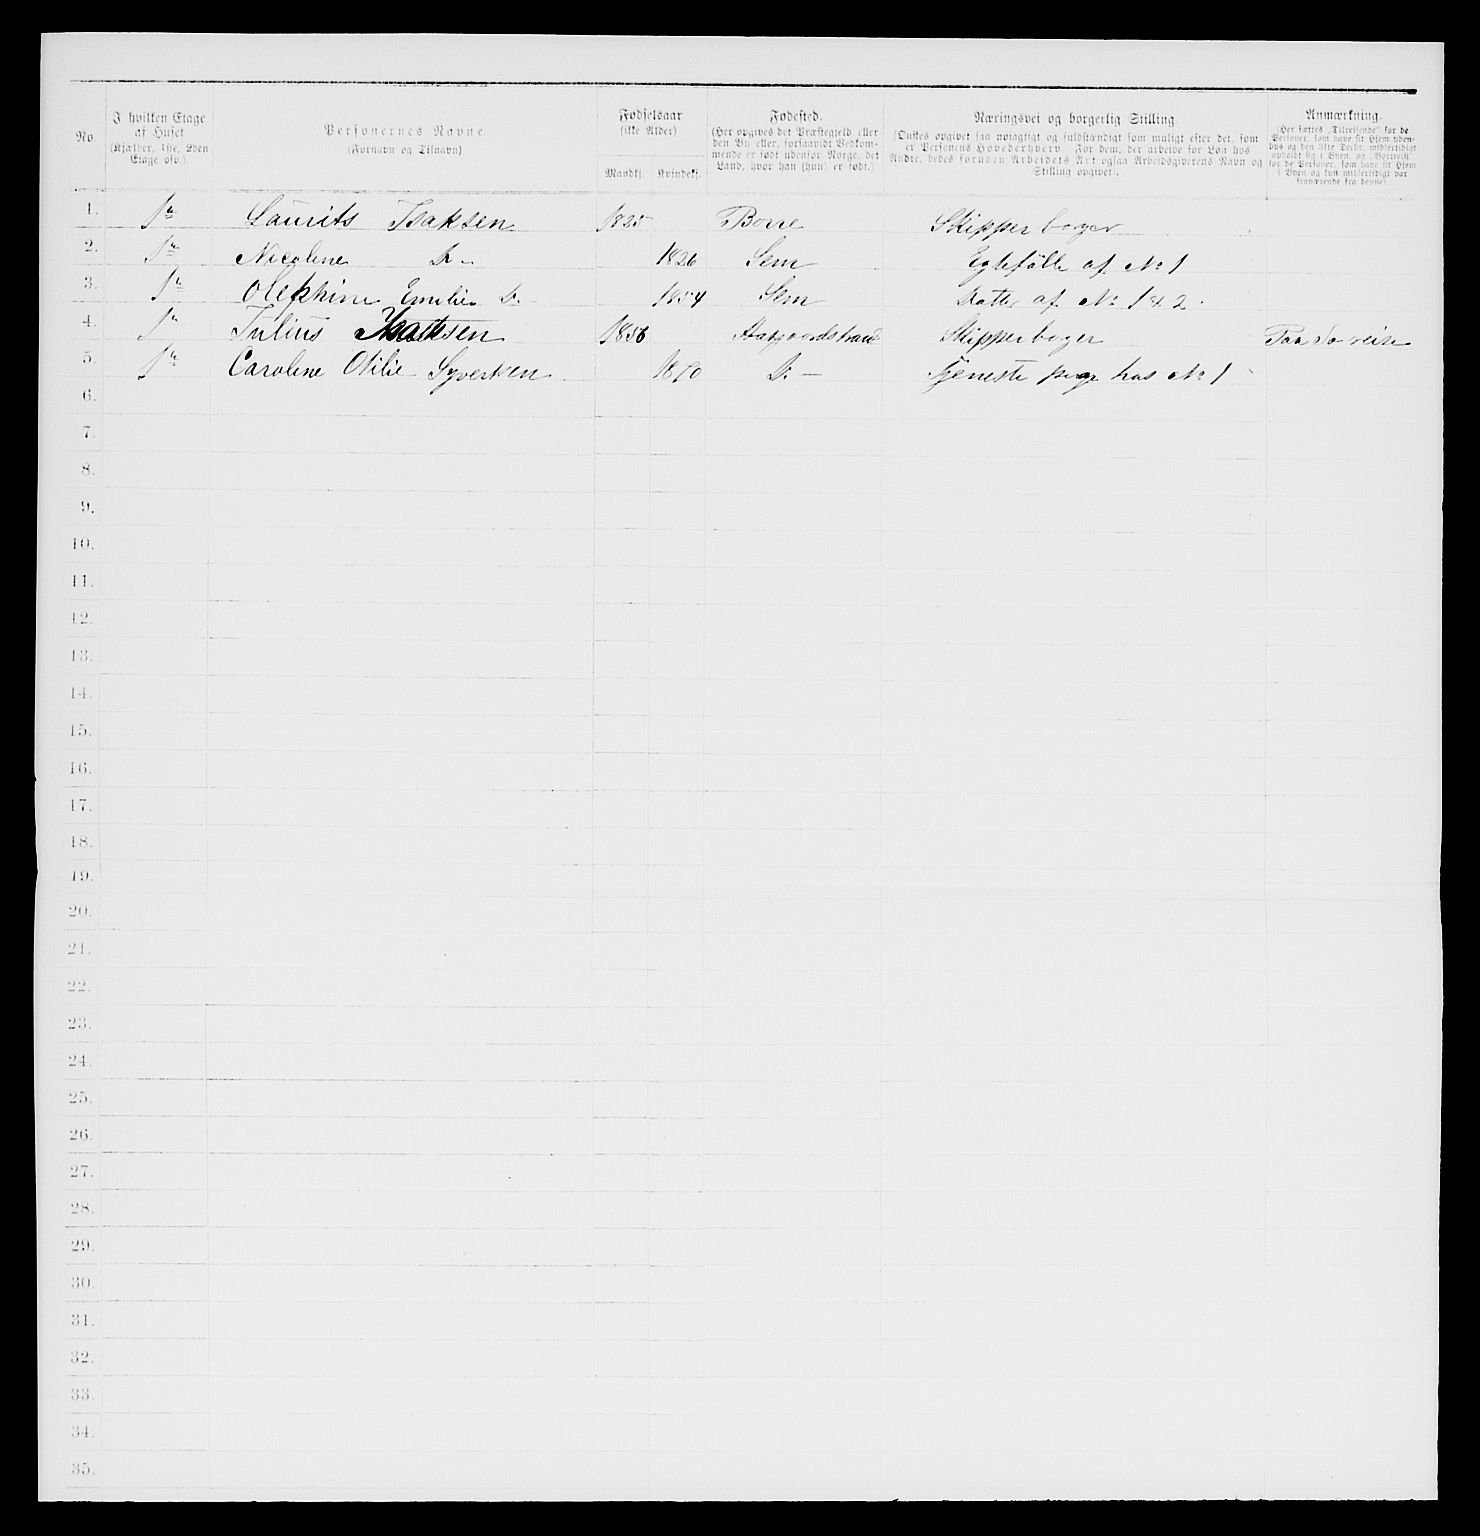 No.
I hvilken Etage
af Huset
(Kjælder, 1ste, 2den
Etage osv.).
Personernes Navne.
(Fornavn og Tilnavn)
Fødselsaar
(ikke Alder)
Mandkj. Kvindekj.
Fødested.
(Her opgives det Præstegjeld eller
den By eller, forsaavidt Vedkom-
mende er født udenfor Norge, det
Land, hvor han (hun) er født.)
Næringsvei og borgerlig Stilling.
(Ønskes opgivet saa nøiagtigt og fuldstændigt som muligt efter det, som
er Personens Hovederhverv. For dem, der arbeide for Løn hos
Andre, bedes foruden Arbeidets Art ogsaa Arbeidsgiverens Navn og
Stilling opgivet).
Anmærkning.
(Her sættes „Tilreisende“ for de
Personer, som have sit Hjem uden-
bys og den 31te Decbr. midlertidigt
opholdt sig i Byen, og „Bortreist“
for de Personer, som have sit Hjem
i Byen og kun midlertidigt var
fraværende fra denne).
1. 1ste Laurits Isaksen 1825 Borre Skipperborger
2. 1ste Nicoline Do 1826 Sem Egtefælle af No 1
3. 1ste Olephine Emilie Do 1854 Sem Datter af No 1 & 2
4. 1ste Julius Isaksen 1856 Aasgaardstrand Skipperborger Paa Søreise
5. 1ste Caroline Otilie Syvertsen 1870 Do Tjenestepige hos No 1
6.
7.
8.
9.
10.
11.
12.
13.
14.
15.
16.
17.
18.
19.
20.
21.
22.
23.
24.
25.
26.
27.
28.
29.
30.
31.
32.
33.
34.
35.